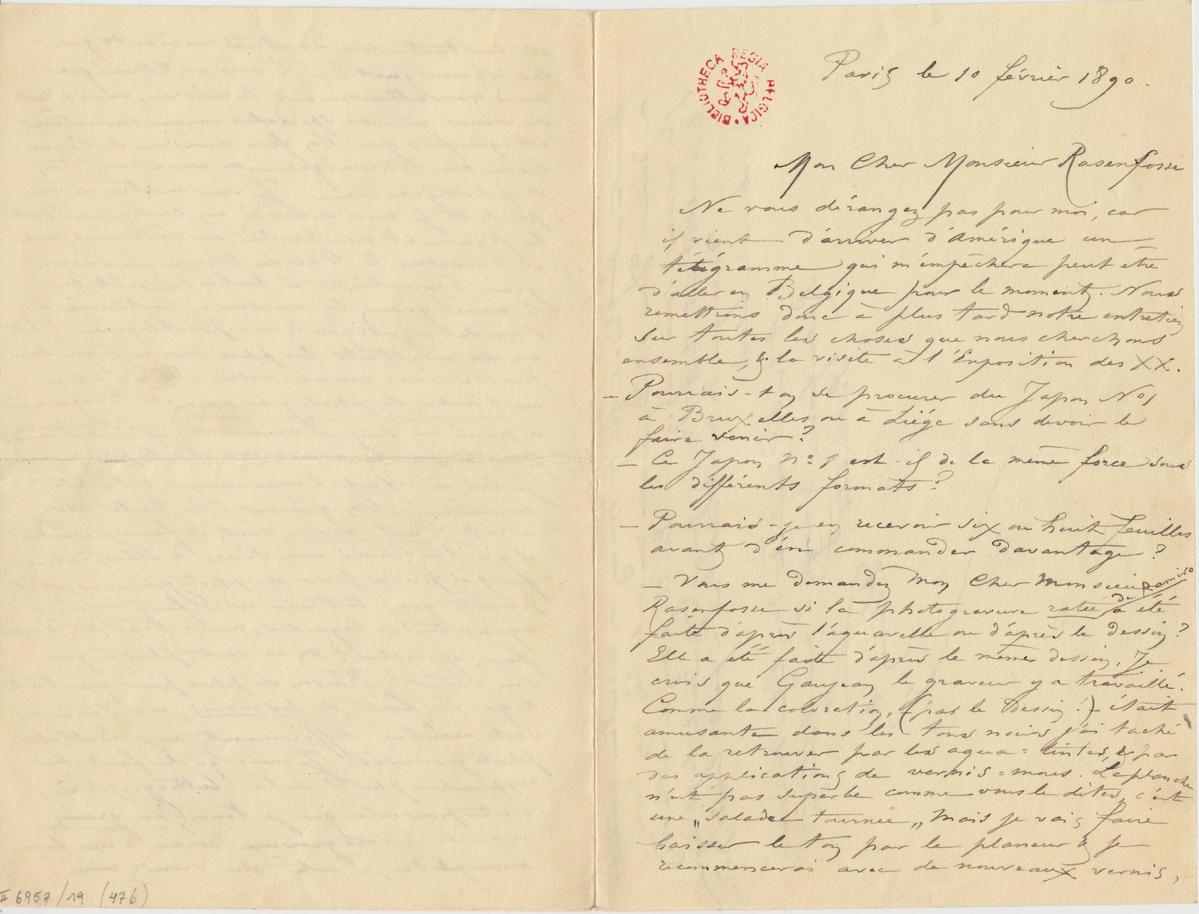 BIBLIOTHECA REGIA BELGICA
Paris le 10 février 1890.
Mon Cher Monsieur Rasenfosse
Ne vous dérangez pas pour moi, car
il vient d'arriver d'Amérique un
télégramme qui m'empêchera peut être
d'aller en Belgique pour le moment. Nous
remettrons donc à plus tard notre entretien
sur toutes les choses que nous cherchons
ensemble, & la visite à l'Exposition des XX.
– Pourrais-t-on se procurer du Japon No 1
à Bruxelles ou à Liége sans devoir le
faire venir?
– Ce Japon No 1 est-il de la même force sous
les différents formats?
– Pourrais-je en recevoir six ou huit feuilles
avant d'en commander davantage?
– Vous me demandez Mon Cher Monsieur
Rasenfosse si la photogravure ratée a été
faite d'après l'aquarelle ou d'après le dessin?
Elle a été faite d'après le même dessin. Je
crois que Gaujean le graveur y a travaillé.
Comme la coloration, (pas le Dessin!) était
amusante dans les tons noirs j'ai taché
de la retrouver par les aqua=tintes, & par
des applications de vernis=mous. La planche
n'est pas superbe comme vous le dites, c'est
une „salade tournée„ Mais je vais faire
baisser le ton par le planeur & je
recommencerai avec de nouveaux vernis,
II 6957/19 (476)